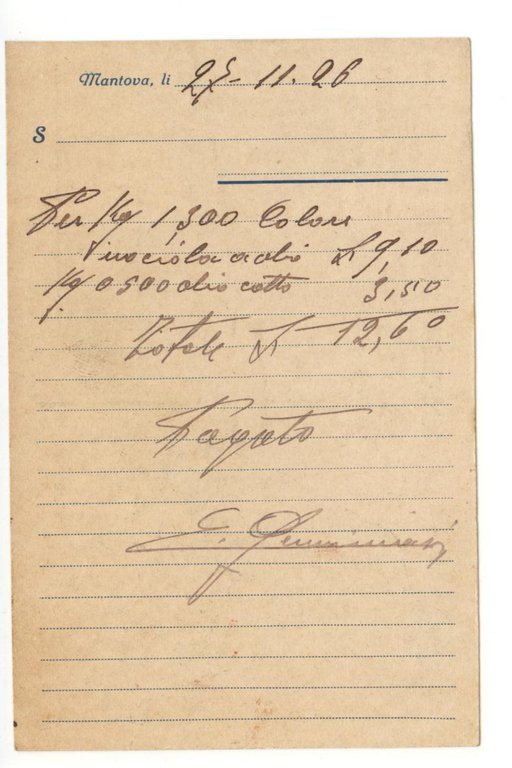 Mantova, li 27-11.26
S
Per Kg 1,300 Colore
nociola a olio £ 9,10
Kg 0500 olio cotto 3,50
Totale £ 12,60
Pagato